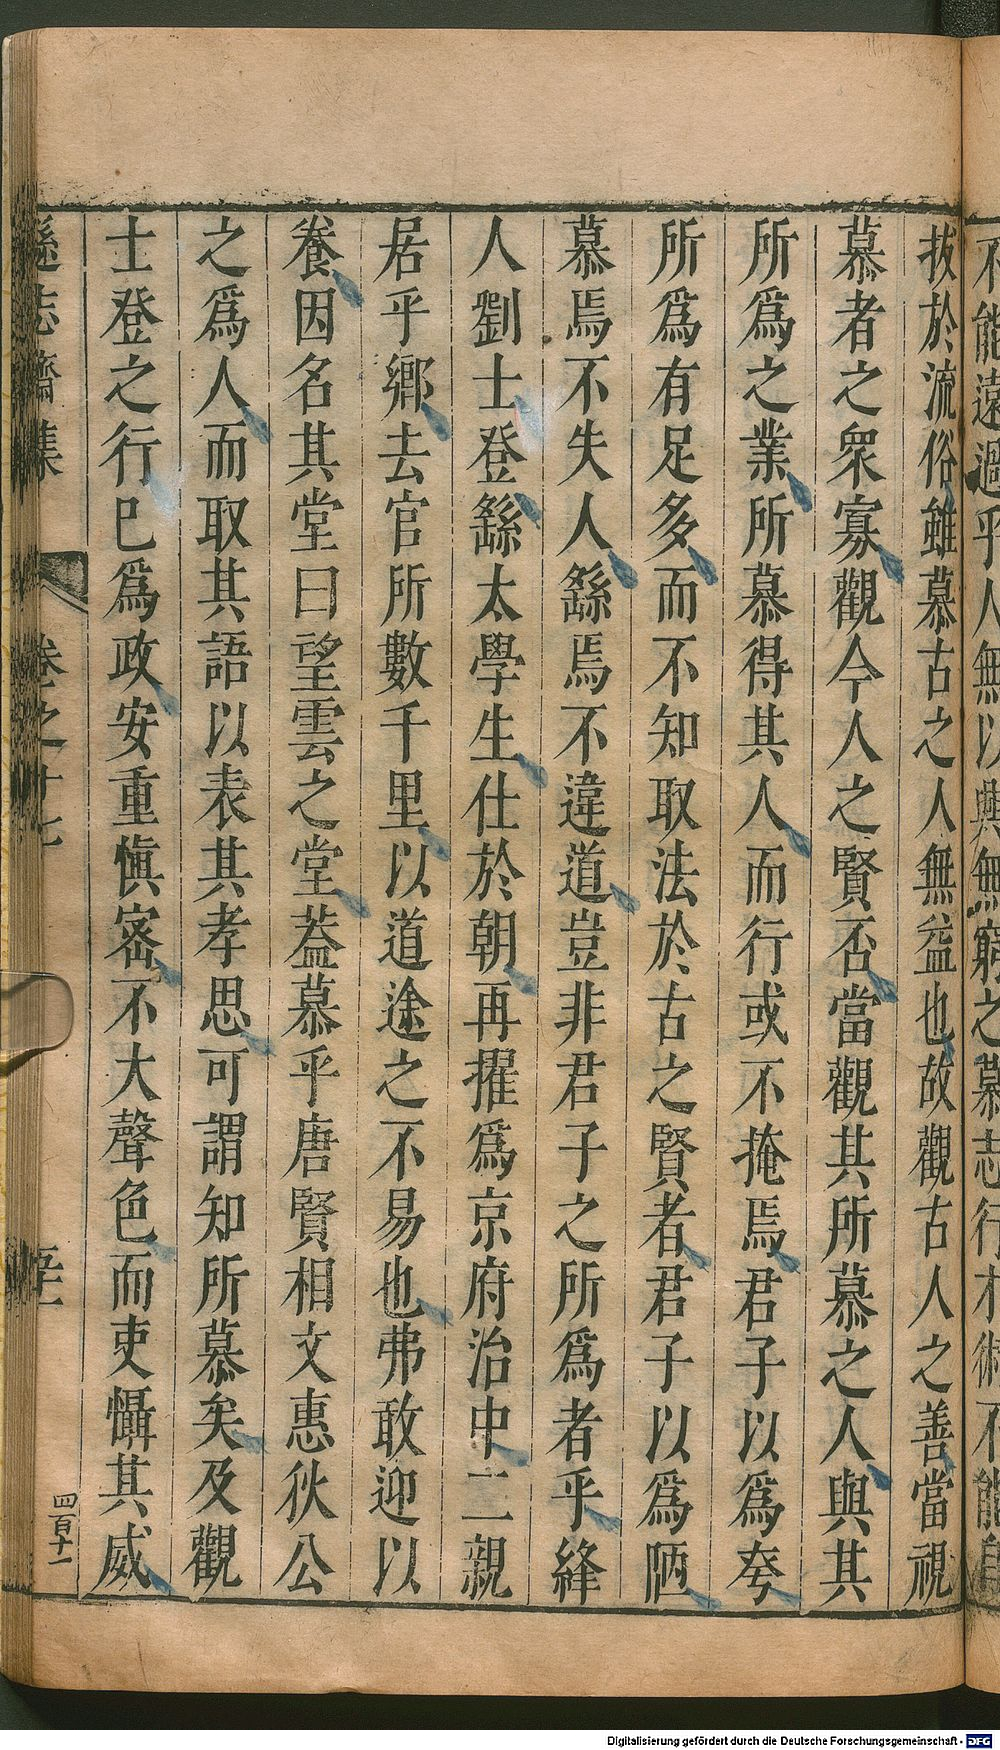 不能遠過乎人無以興無窮之慕志行才術不能自
拔於流俗雖慕古之人無益也故觀古人之善當視
慕者之衆寡觀今人之賢否當觀其所慕之人與其
所爲之業所慕得其人而行或不掩焉君子以爲夸
所爲有足多而不知取法於古之賢者君子以爲陋
慕焉不失人繇焉不違道豈非君子之所爲者乎絳
人劉士登繇太學生仕於朝再擢爲京府治中二親
居乎鄉去官所數千里以道途之不易也弗敢迎以
養因名其堂曰望雲之堂葢慕乎唐賢相文惠狄公
之爲人而取其語以表其孝思可謂知所慕矣及觀
士登之行巳爲政安重愼密不大聲色而吏懾其威
遜志齋集
卷之十七
四百十一
Digitalisierung gefördert durch die Deutsche Forschungsgemeinschaft - DFG